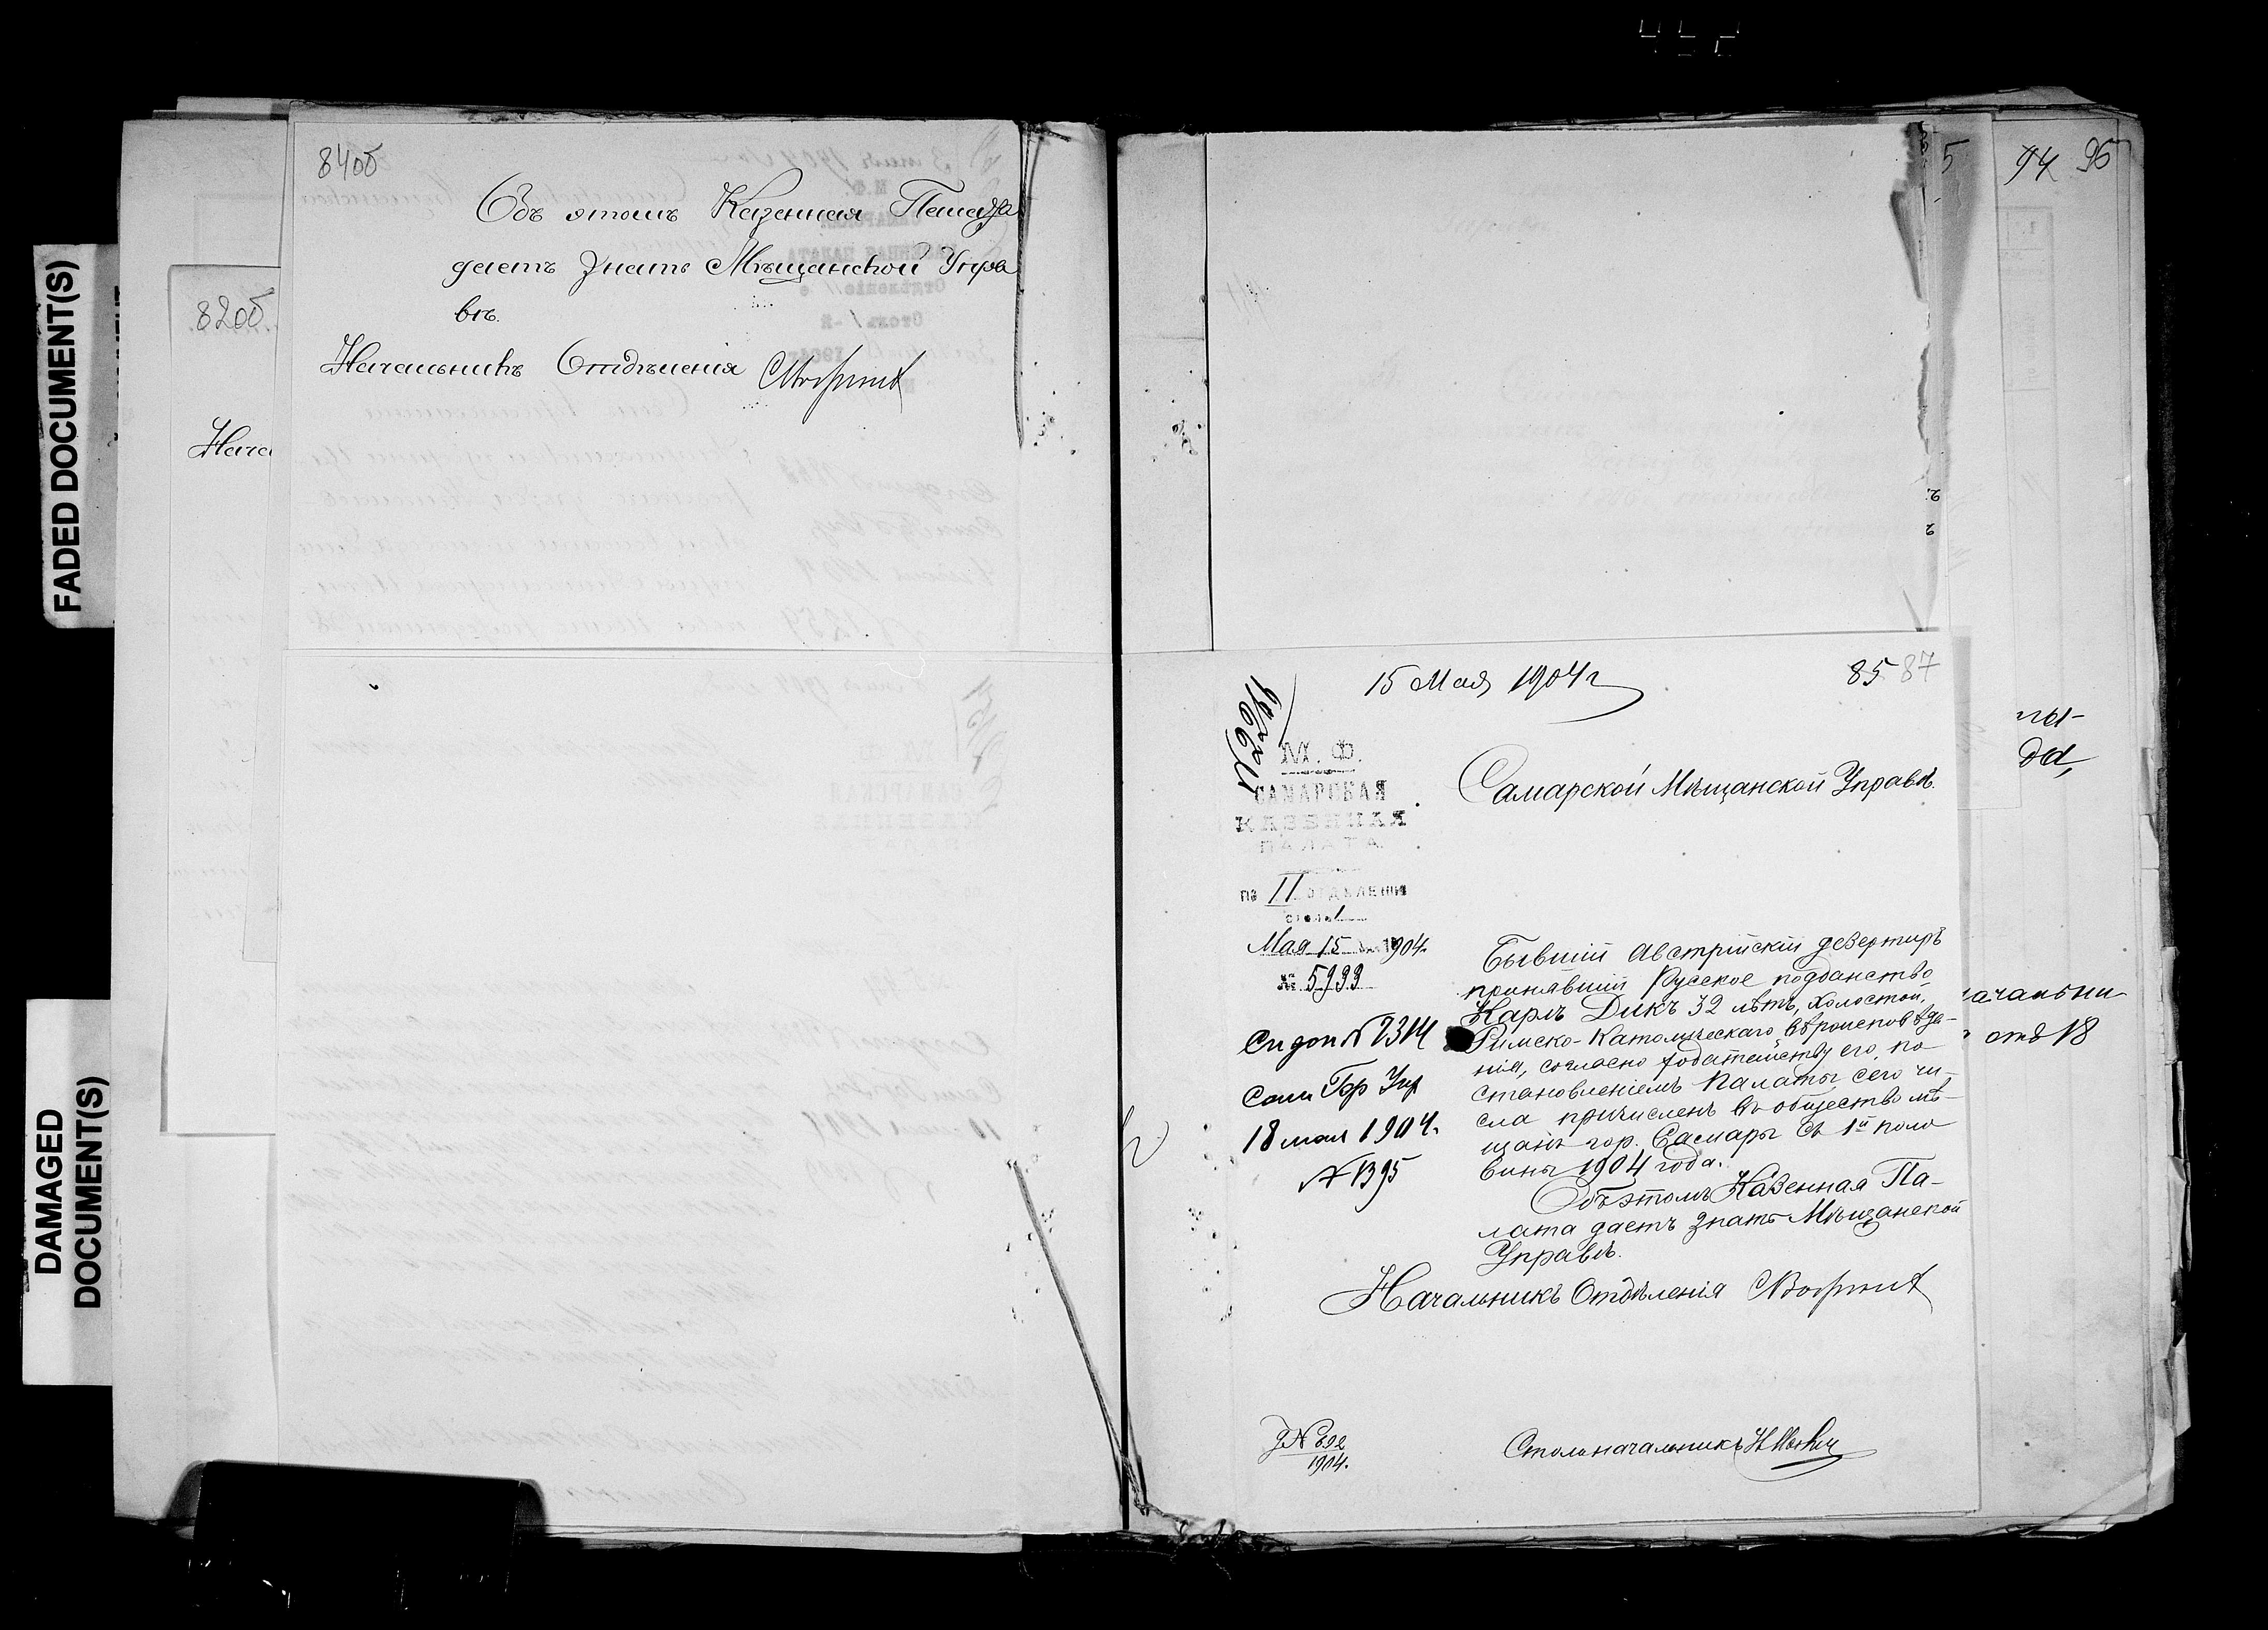 FADED DOCUMENT(S)
DAMAGED
DOCUMENT(S)
82об
Нача
84об
Объ этомъ Казенная Палата
даетъ знать Мѣщанской Упра
вѣ.
Начальникъ Отдѣленія
5
94 96
15 Мая 1904 г
85 87
М. Ф.
САМАРСКАЯ
КАЗЕННАЯ
ПАЛАТА
по II отдѣленію
столъ 1
Мая 15 1904.
№ 5933
Самарской Мѣщанской Управѣ.
Бывшій Австрійскій дезертиръ
принявшій Русское подданство
Карлъ Дикъ 32 лѣтъ, холостой,
Римско-Католическаго вѣроисповѣда-
нія, согласно ходатайству его, по-
становленіемъ Палаты, сего чи-
сла причисленъ въ общество мѣ-
щанъ гор. Самары съ 1й поло
вины 1904 года.
Объ этомъ Казенная Па-
лата даетъ знать Мѣщанской
Управѣ.
Начальникъ Отдѣленія
Сам Гор Упр
18 мая 1904.
№ 1395
Столоначальникъ
1904.
ны-
да,
ачальни
отд 18